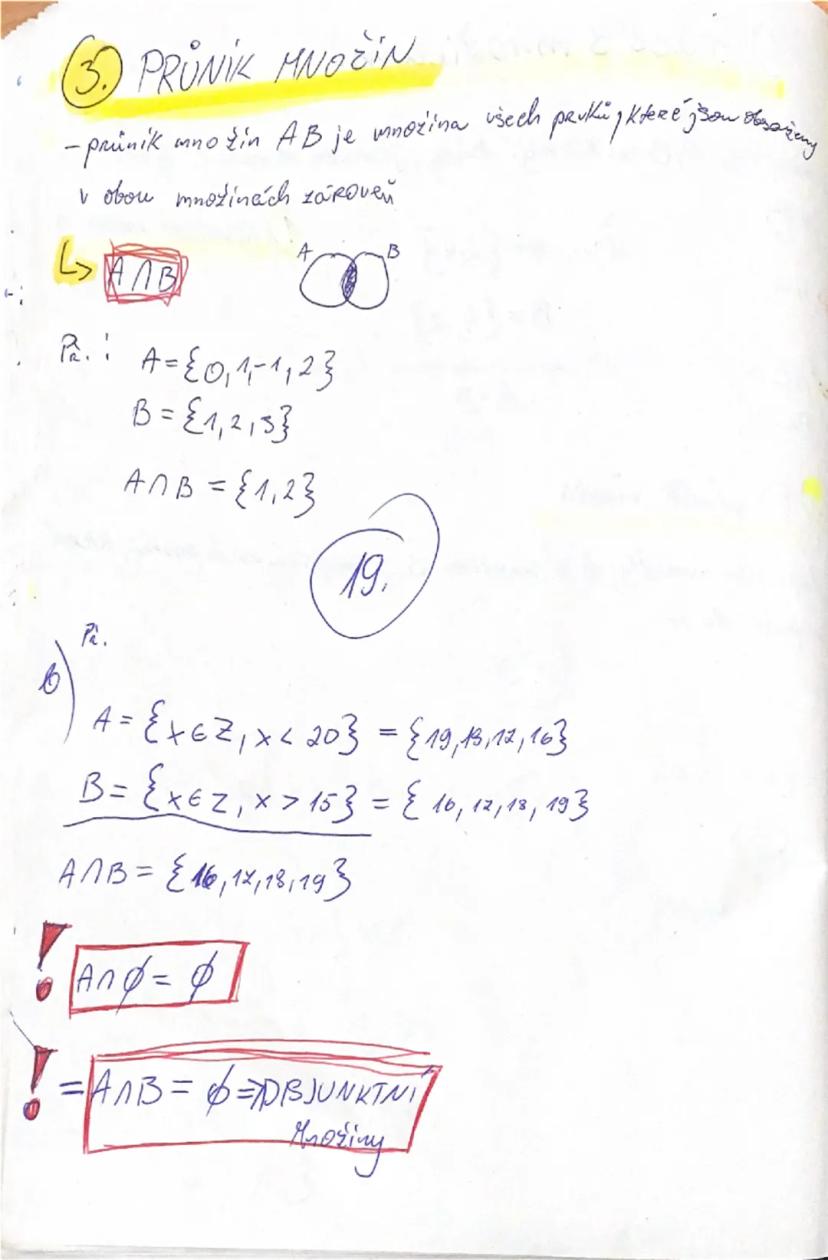 3. PRŮNIK MNOŽIN
- průnik množin AB je množina všech prvků, které jsou obsaženy
v obou množinách zároveň
↳ A∩B
A B
Př.:
A={0,1,-1,2}
B={1,2,3}
A∩B={1,2}
19.
Př.
b)
A={x∈Z, x<20} = {19,18,17,16}
B={x∈Z, x>15} = {16,17,18,19}
A∩B={16,17,18,19}
! A∩∅=∅
! =A∩B=∅⇒DBJUNKTNÍ
Množiny